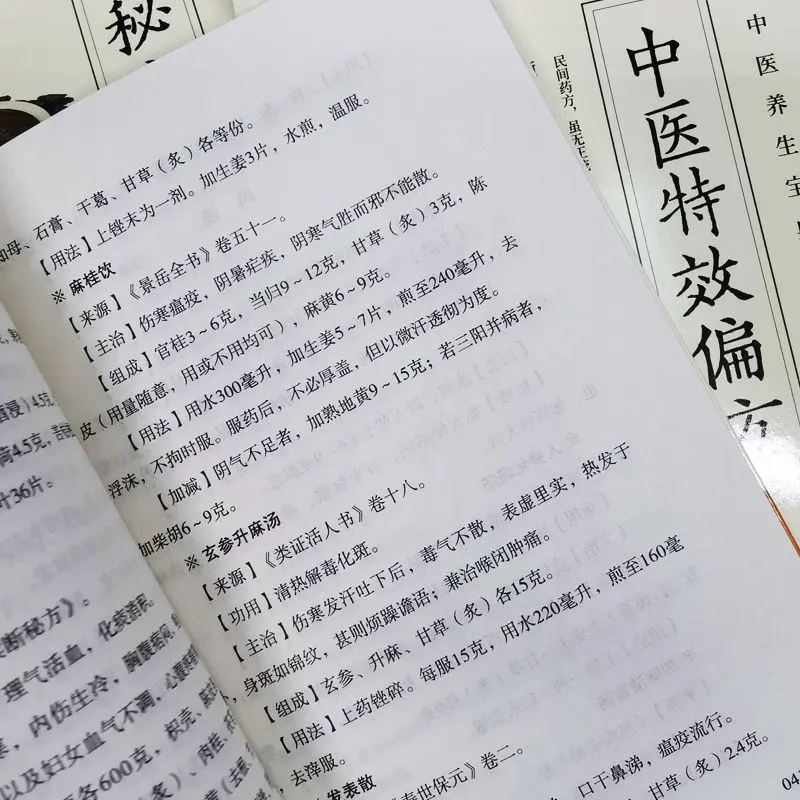 秘
中医特效偏方
中医养生宝
民间药方,虽无正
知母、石膏、干葛、甘草(炙)各等份。
【用法】上锉末为一剂。加生姜3片,水煎,温服。
※ 麻桂饮
【来源】《景岳全书》卷五十一。
【主治】伤寒瘟疫,阴暑疟疾,阴寒气胜而邪不能散。
【组成】官桂3~6克,当归9~12克,甘草(炙)3克,陈
皮(用量随意,用或不用均可),麻黄6~9克。
【用法】用水300毫升,加生姜5~7片,煎至240毫升,去
浮沫,不拘时服。服药后,不必厚盖,但以微汗透彻为度。
【加减】阴气不足者,加熟地黄9~15克;若三阳并病者,
加柴胡6~9克。
※ 玄参升麻汤
【来源】《类证活人书》卷十八。
【功用】清热解毒化斑。
【主治】伤寒发汗吐下后,毒气不散,表虚里实,热发于
,身斑如锦纹,甚则烦躁谵语;兼治喉闭肿痛。
【组成】玄参、升麻、甘草(炙)各15克。
【用法】上药锉碎。每服15克,用水220毫升,煎至160毫
,去滓服。
发表散
寿世保元》卷二。
口干鼻涕,瘟疫流行。
甘草(炙)2.4克。
04
酒浸)4.5克
膏4.5克,
叶36片。
断秘方》。
理气活血,化痰消积。
,内伤生冷,胸腹痞闷,
以及妇女血气不调,心腹
各600克,枳壳、
)、肉桂、